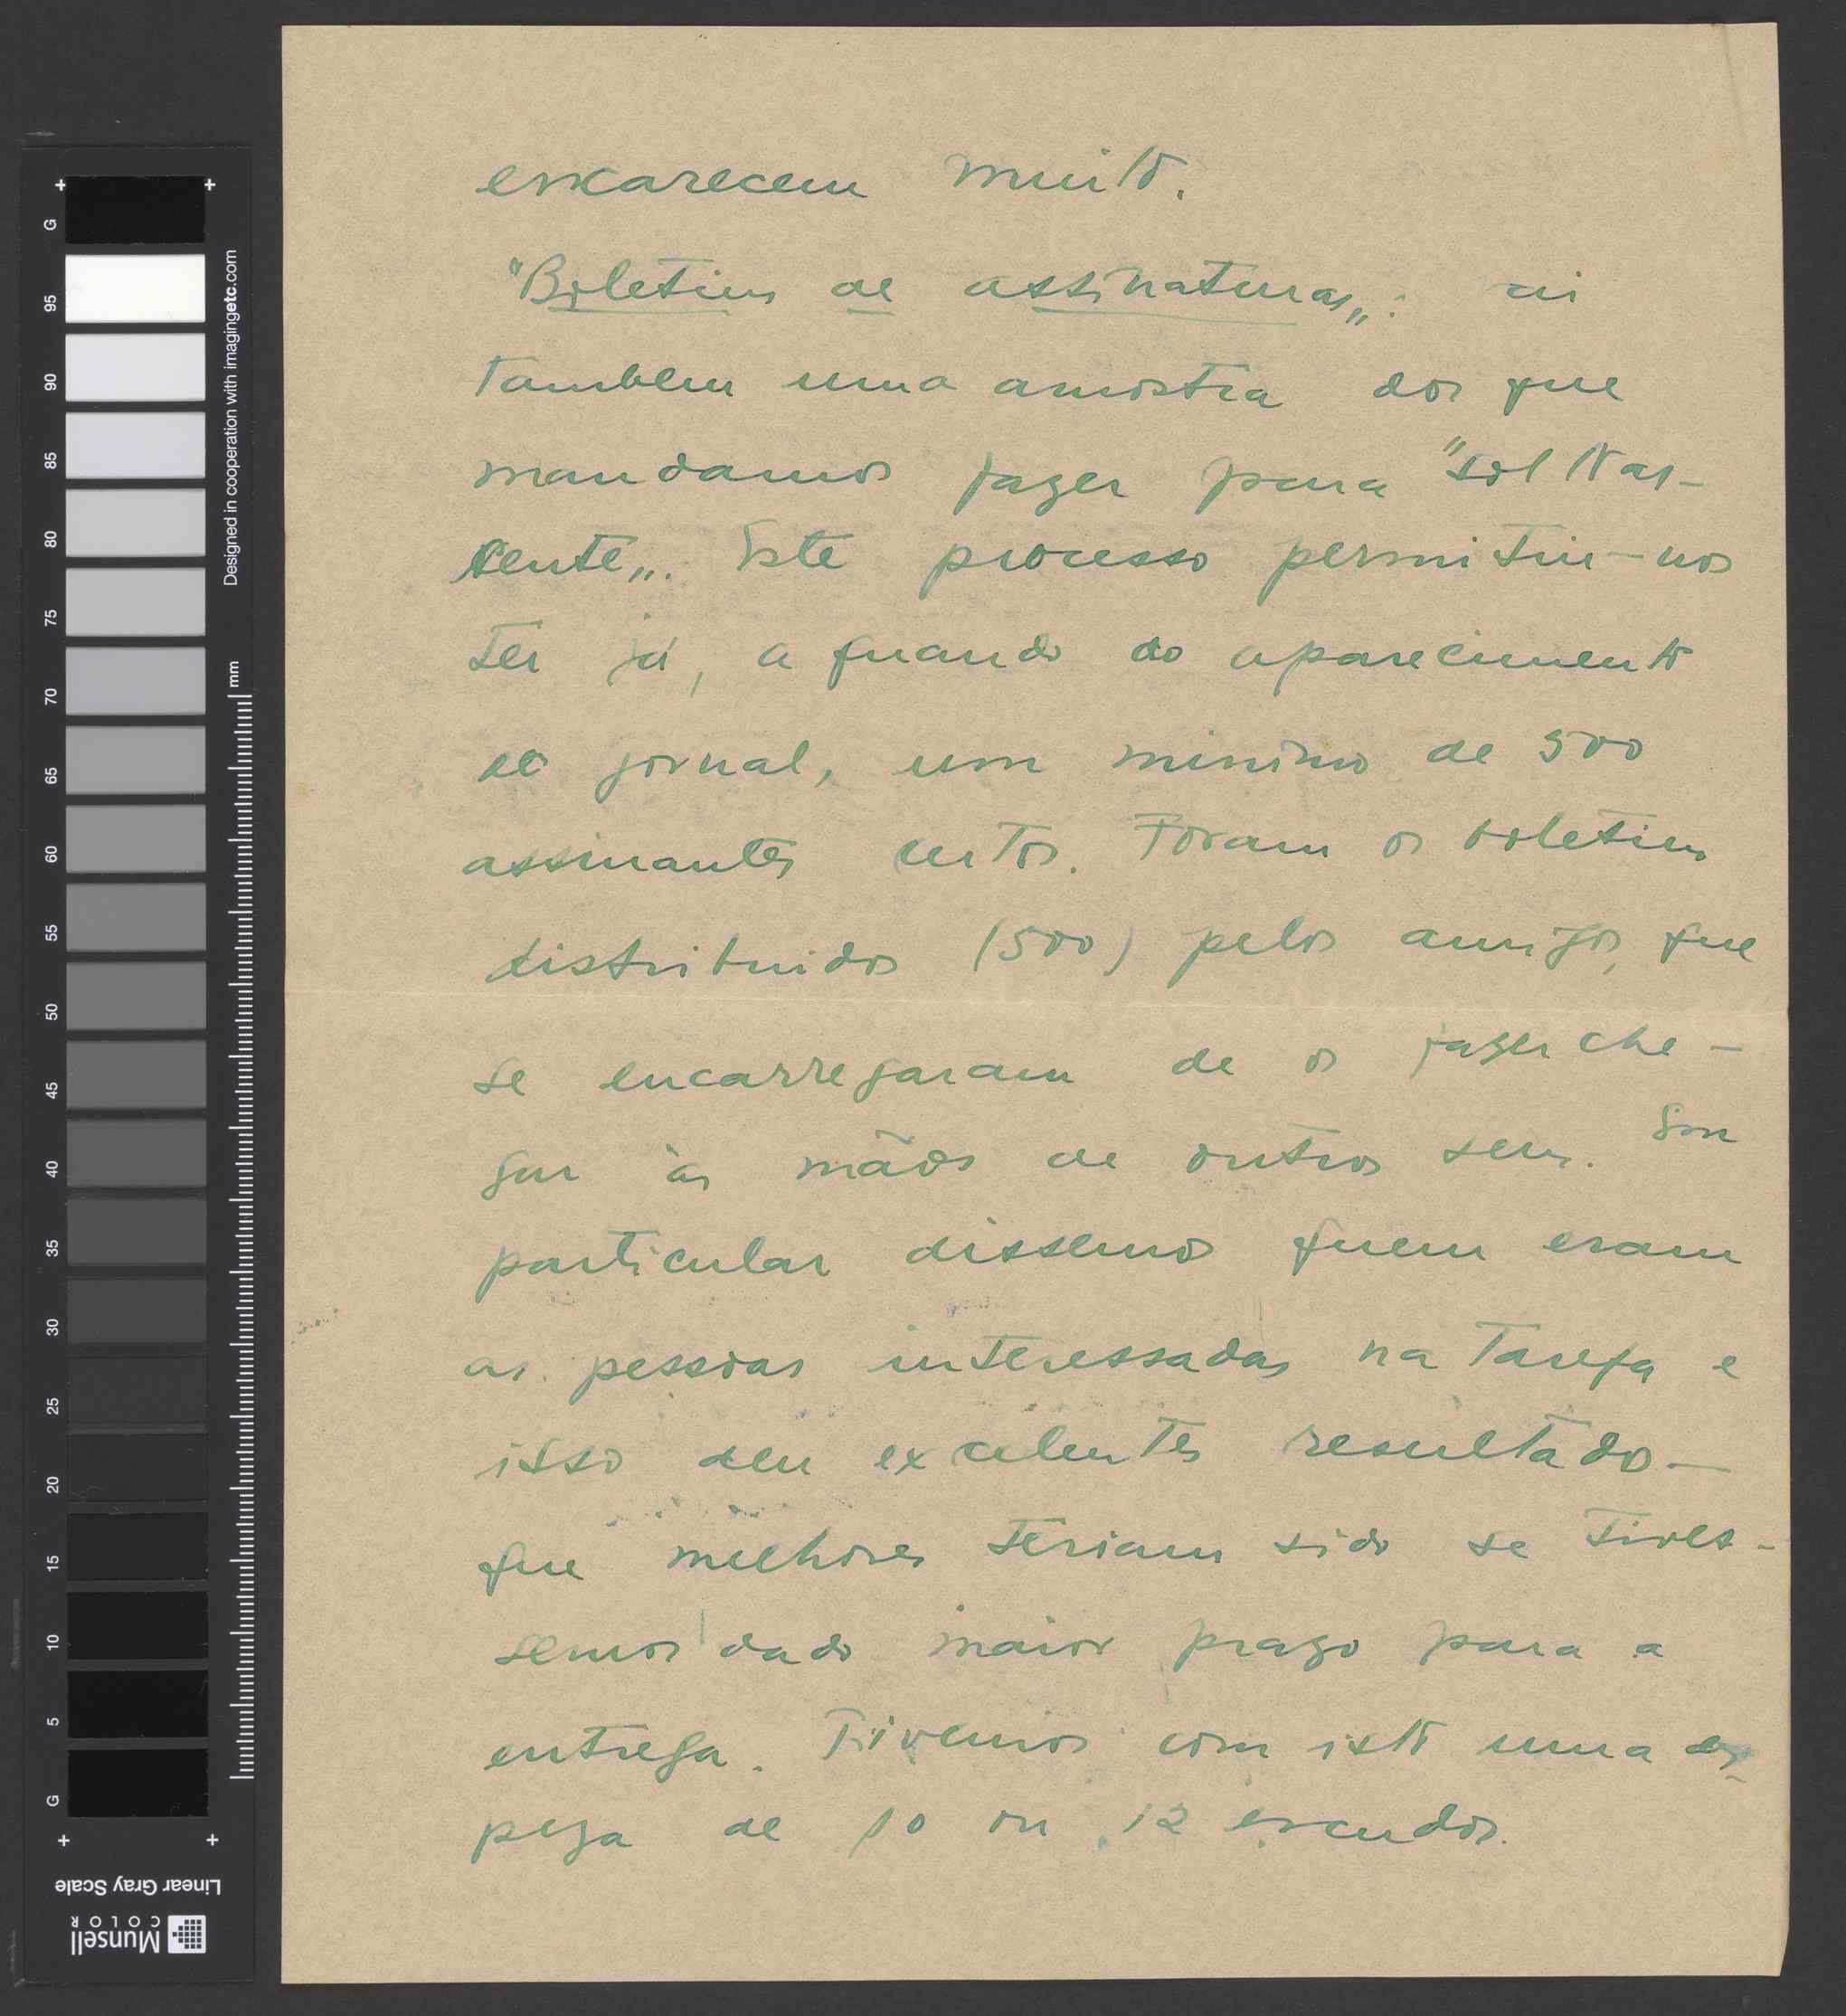 encarecem muito.
"Boletim de assinaturas": ai
tambem uma amostra dos que
mandamos fazer para "Sol Nas-
cente". Este processo permitiu-nos
ter já, a quando do aparecimento
do jornal, um minimo de 500
assinantes certos. Foram os boletins
distribuidos (500) pelos amigos, que
se encarregaram de os fazer che-
gar ás mãos de outros seus. Em
particular dissemos quem eram
as pessoas interessadas na tarefa e
isso deu excelentes resultados —
que melhores teriam sido se tives-
semos dado maior prazo para a
entrega. Tivemos com isto uma des-
peza de 10 ou 12 escudos.
G 95 90 85 80 75 70 65 60 55 50 45 40 35 30 25 20 15 10 5 G
mm
Designed in cooperation with imagingetc.com
Linear Gray Scale
Munsell
COLOR